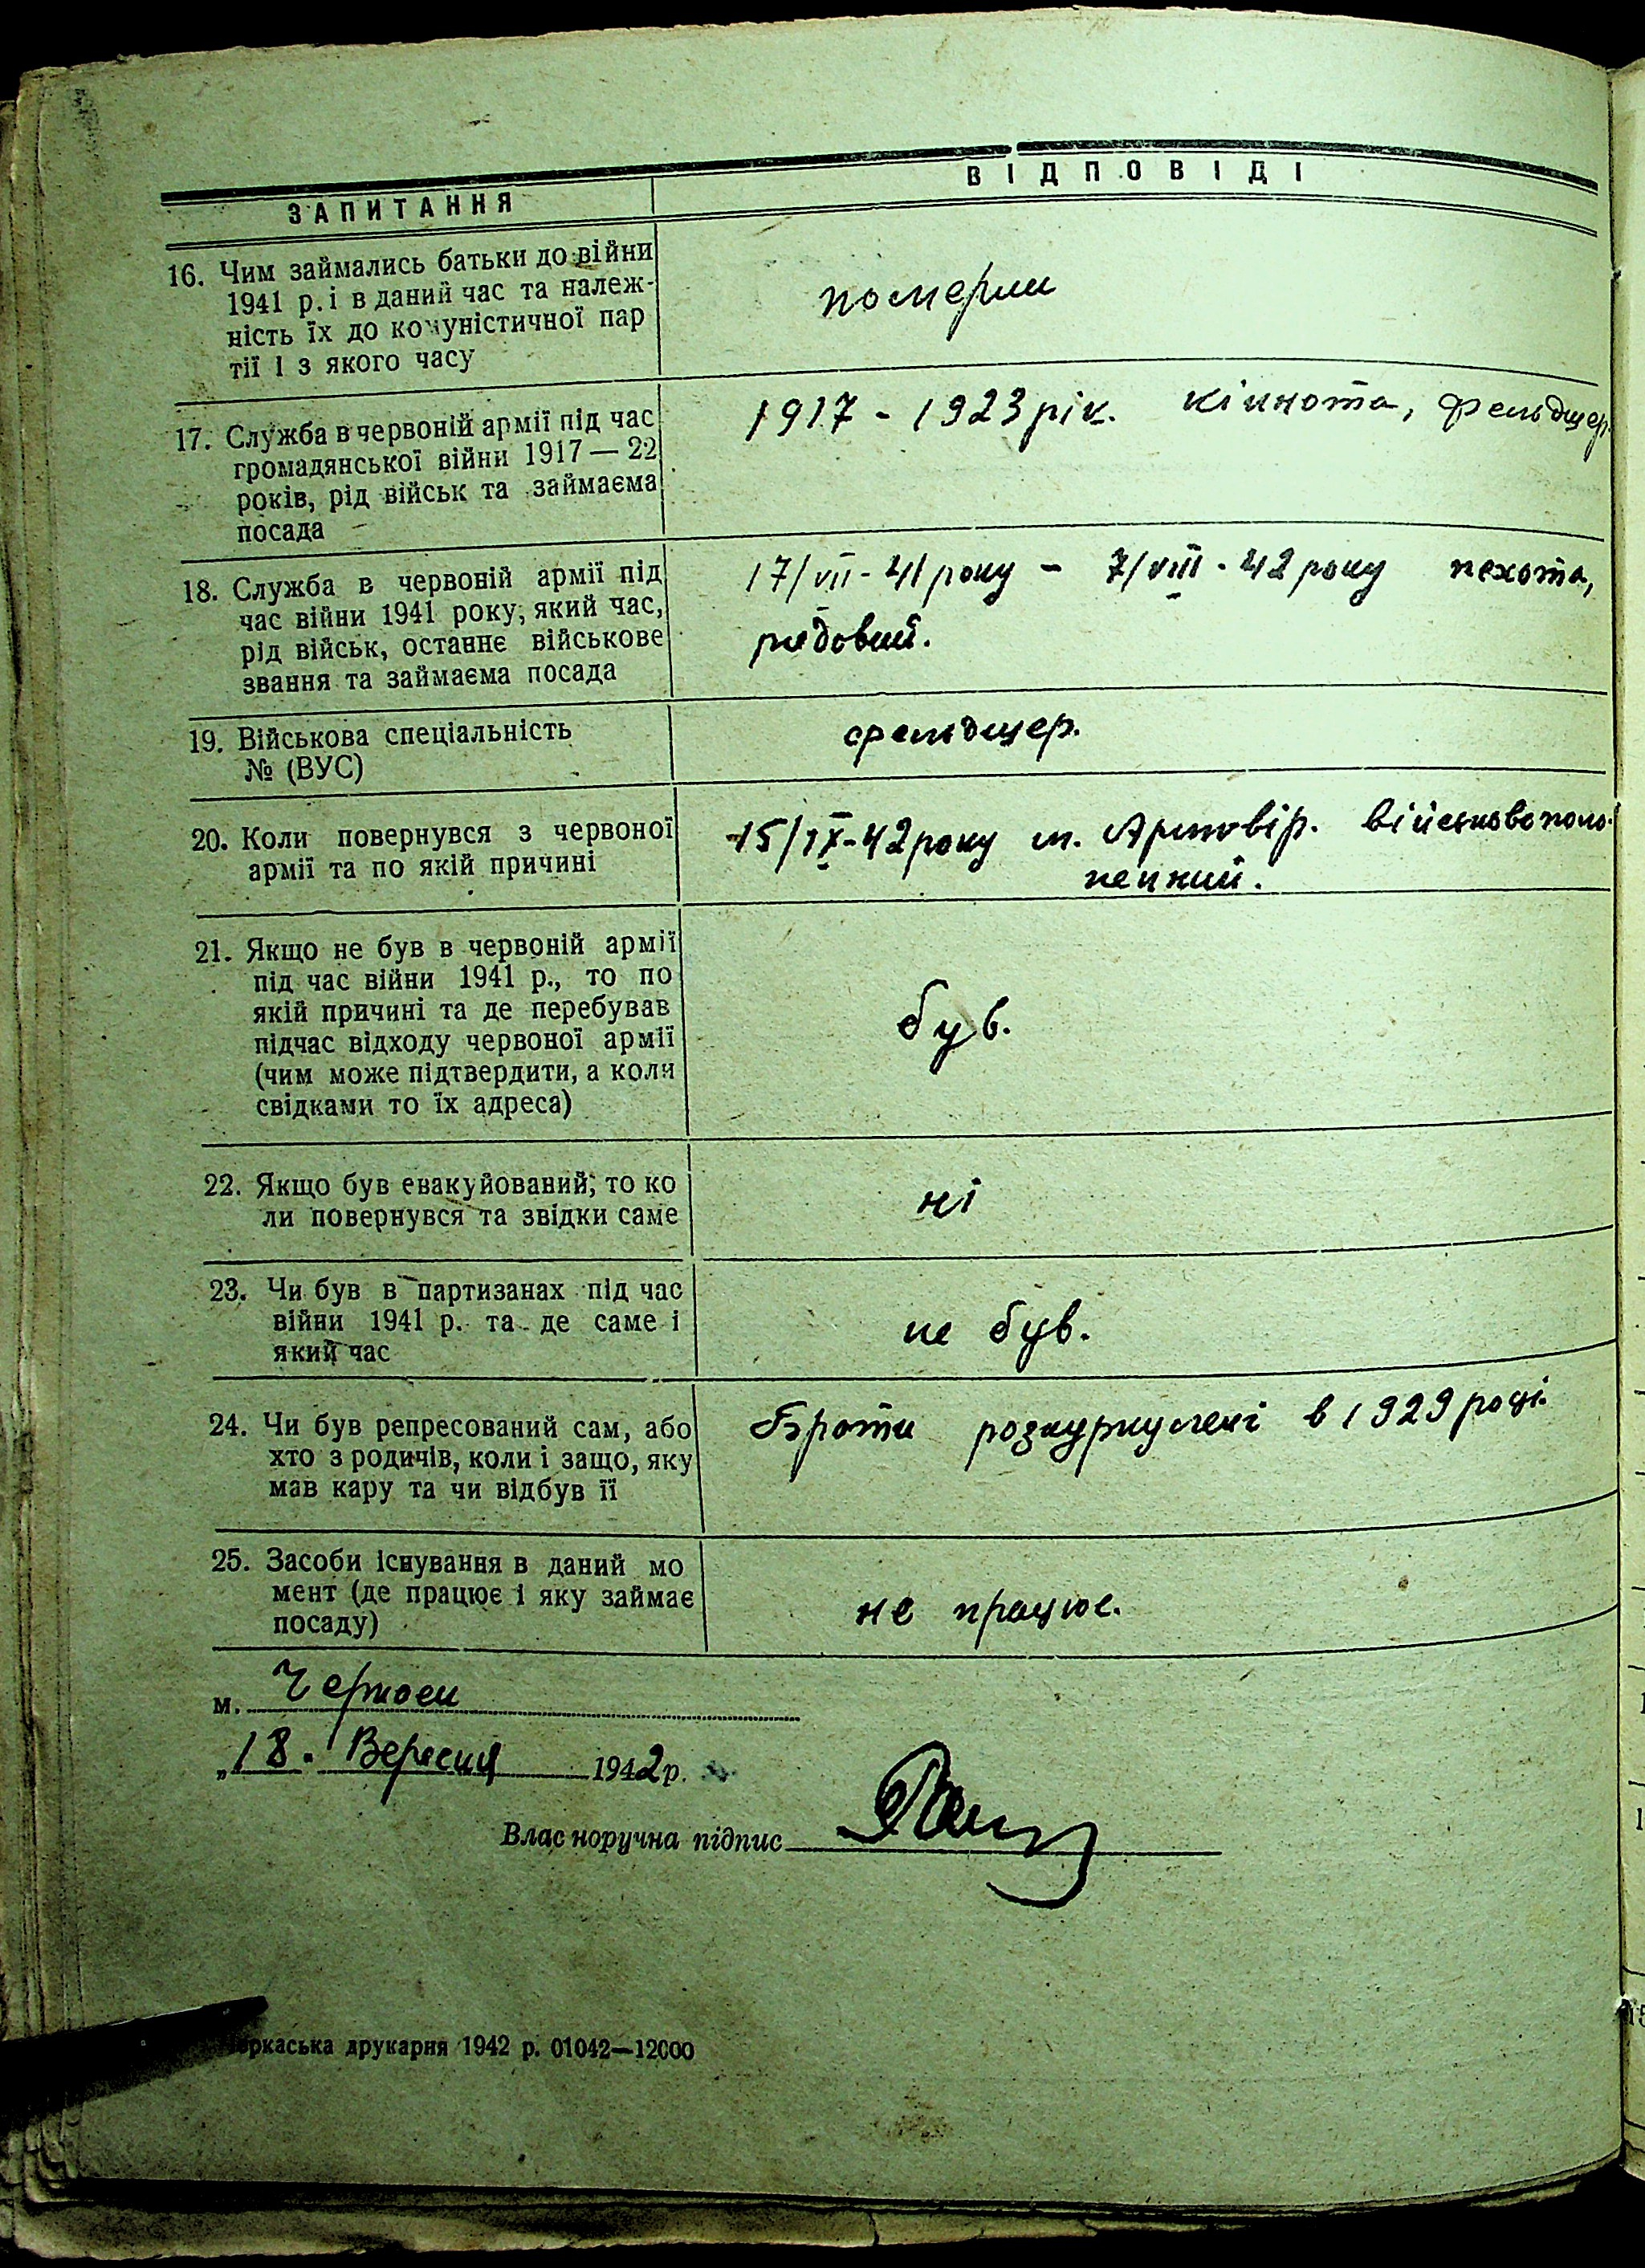 ЗАПИТАННЯ
ВІДПОВІДІ
16. Чим займались батьки до війни
1941 р. і в даний час та належ-
ність їх до комуністичної пар
тії і з якого часу
померли
17. Служба в червоній армії під час
громадянської війни 1917 — 22
років, рід військ та займаєма
посада
1917 - 1923 рік. кіннота, фельдшер
18. Служба в червоній армії під
час війни 1941 року, який час,
рід військ, останнє військове
звання та займаєма посада
17/VII - 41 року - 7/VIII - 42 року пехота,
рядовий.
19. Військова спеціальність
№ (ВУС)
фельдшер.
20. Коли повернувся з червоної
армії та по якій причині
15/IX-42 року м. Армавір. військовополо-
нений.
21. Якщо не був в червоній армії
під час війни 1941 р., то по
якій причині та де перебував
підчас відходу червоної армії
(чим може підтвердити, а коли
свідками то їх адреса)
був.
22. Якщо був евакуйований, то ко
ли повернувся та звідки саме
ні
23. Чи був в партизанах під час
війни 1941 р. та де саме і
який час
не був.
24. Чи був репресований сам, або
хто з родичів, коли і защо, яку
мав кару та чи відбув її
Брати розкуркулені в 1929 році.
25. Засоби існування в даний мо
мент (де працює і яку займає
посаду)
не працює.
м. Черкаси
„18. Вересня 1942 р.
Власноручна підпис
еркаська друкарня 1942 р. 01042—12000